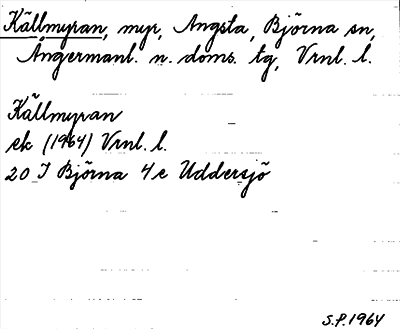 Källmyran, myr, Angsta, Björna sn,
Ångermanl. n. doms. tg, Vrnl. l.
Källmyran
ek (1964) Vrnl. l.
20 I Björna 4 e Uddersjö
S.P. 1964